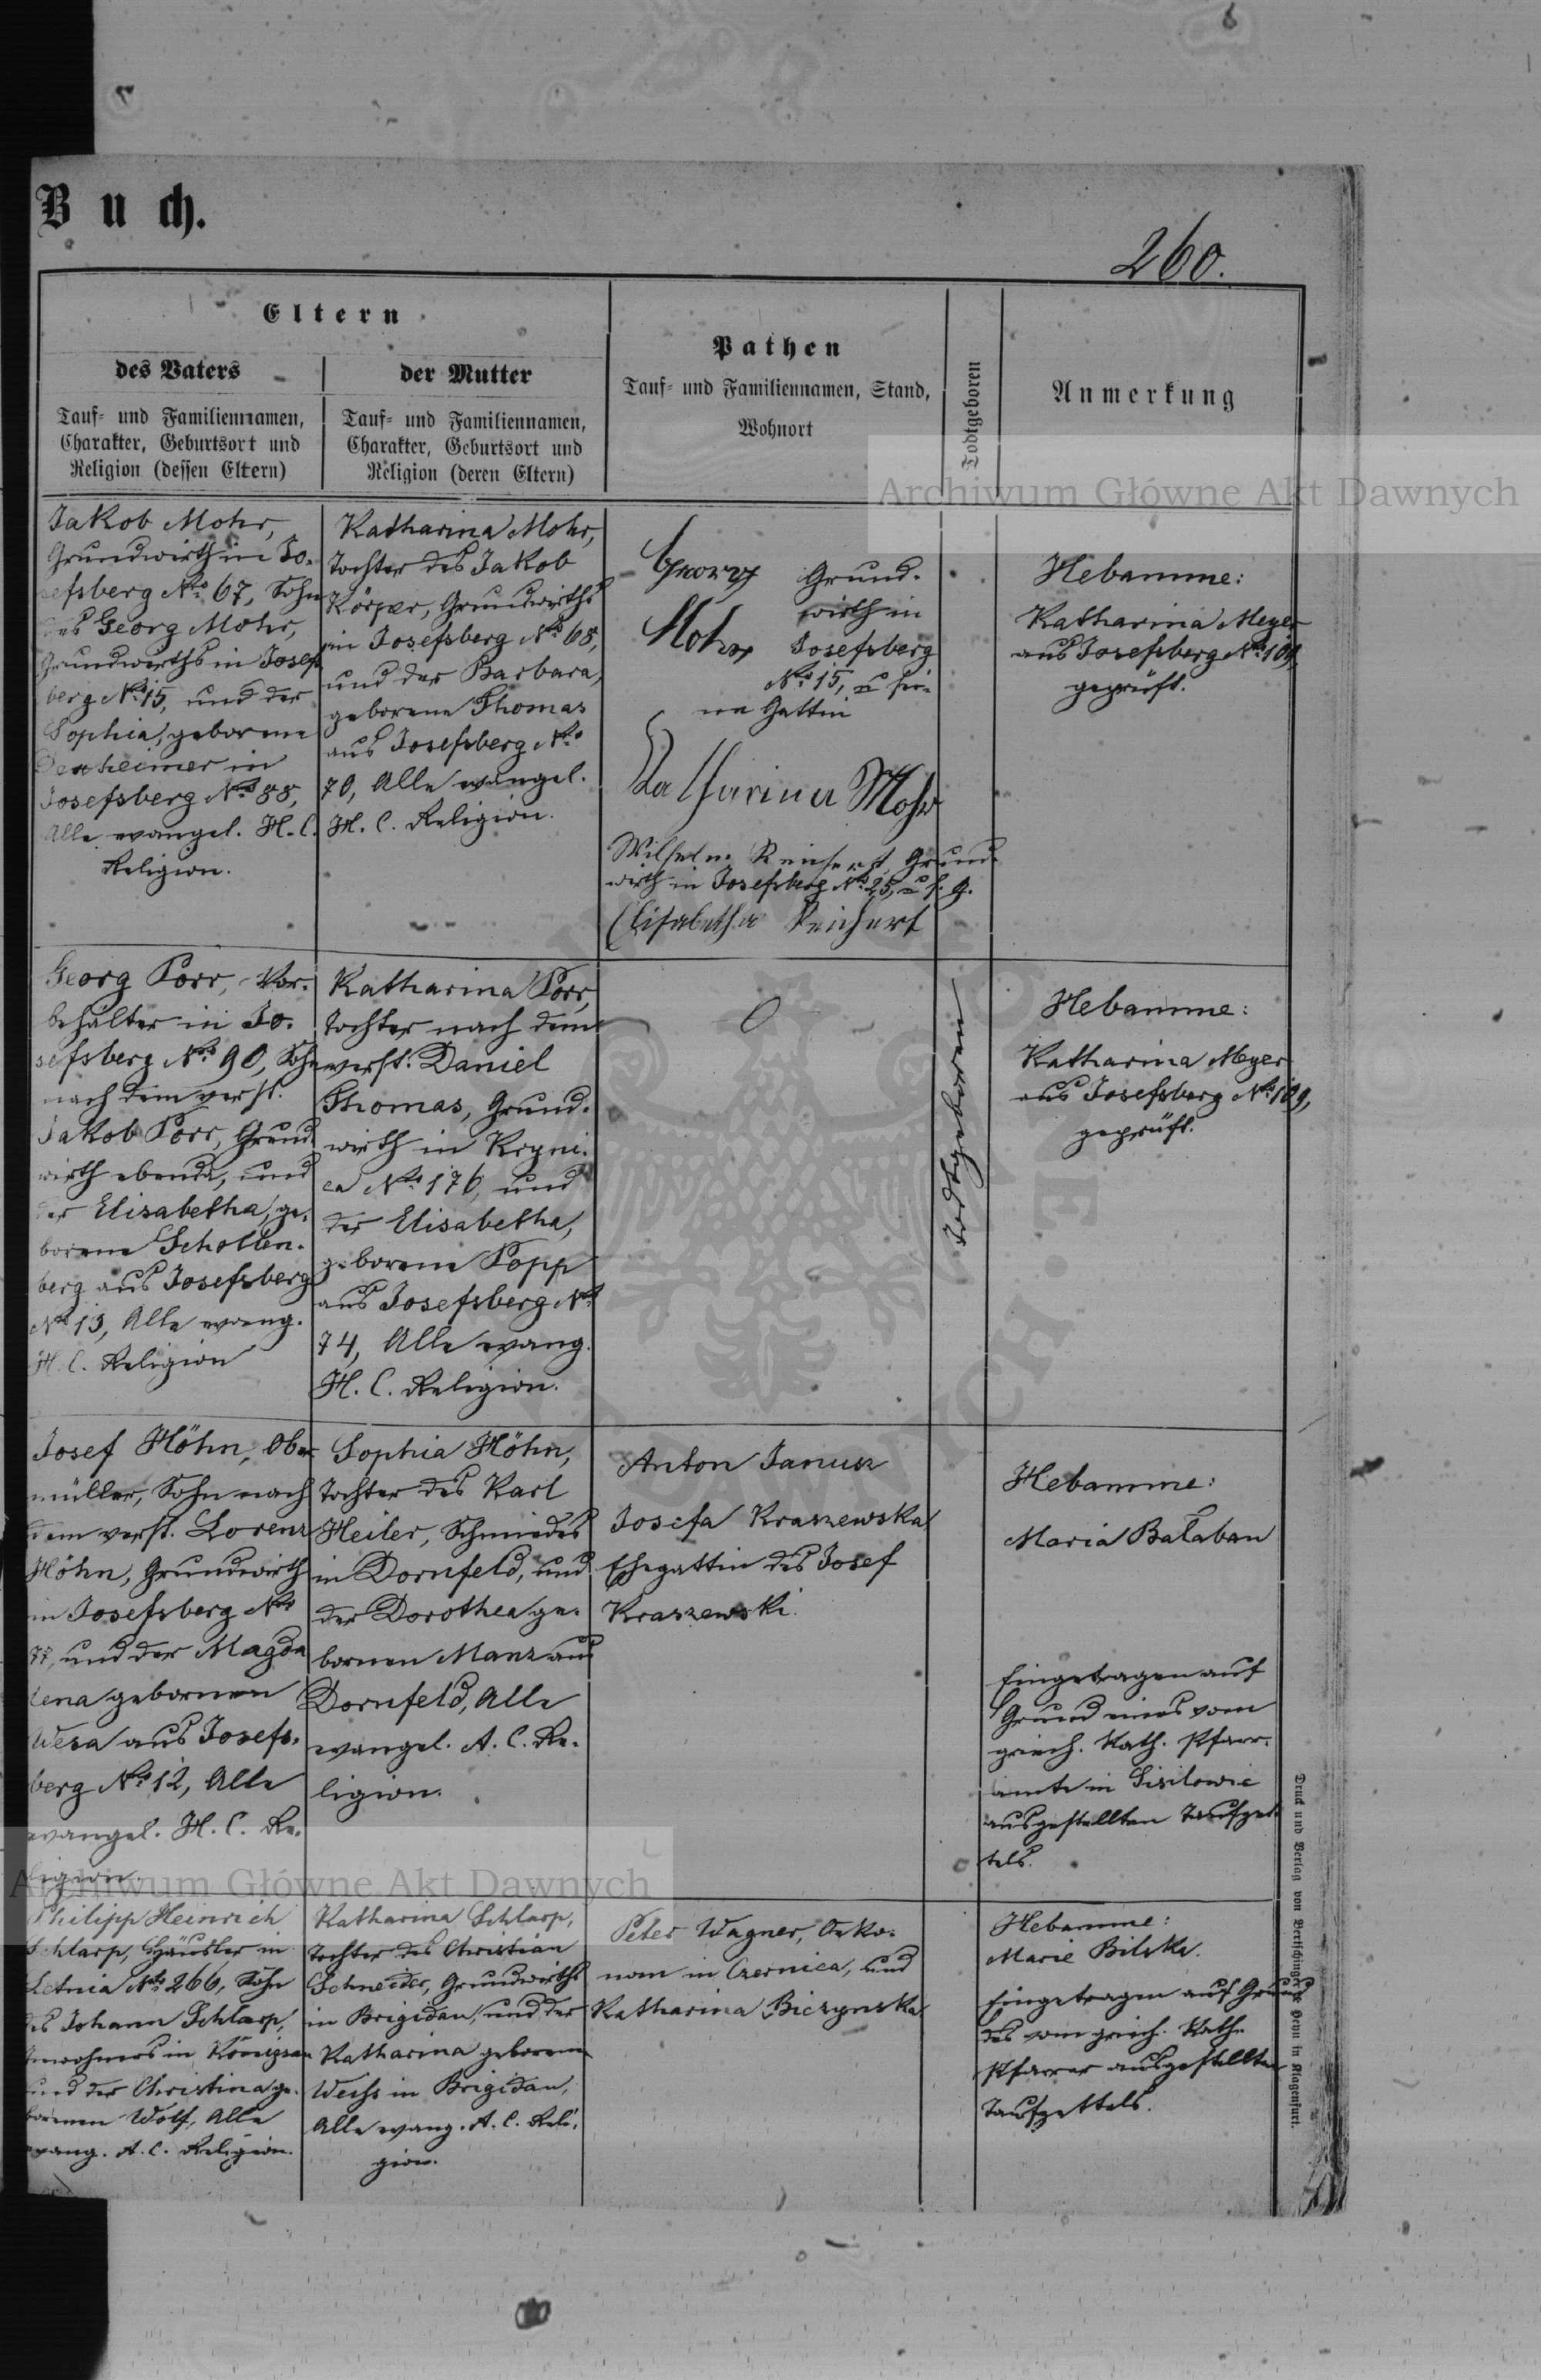 Buch.
260.
Eltern
des Vaters
der Mutter
Tauf- und Familiennamen,
Charakter, Geburtsort und
Religion (dessen Eltern)
Tauf- und Familiennamen,
Charakter, Geburtsort und
Religion (deren Eltern)
Pathen
Tauf- und Familiennamen, Stand,
Wohnort
Todtgeboren
Anmerkung
Archiwum Główne Akt Dawnych
Jakob Mohr,
Grundwirth in Jo-
sefsberg No. 67, Sohn
des Georg Mohr,
Grundwirths in Josef
berg No. 15, und der
Sophia, geborene
in
Josefsberg No. 88,
Alle evangel. H. C.
Religion.
Katharina Mohr,
Tochter des Jakob
Körper, Grundwirths
in Josefsberg No. 68,
und der Barbara,
geborene Thomas
aus Josefsberg No.
70, Alle evangel.
H. C. Religion.
Georg Grund-
wirth in
Mohr Josefsberg
No. 15, u sei-
ne Gattin
Katharina Mohr
Wilhelm Reichert, Grund-
wirth in Josefsberg No. 25, u s. g.
Elisabetha Reichert
Hebamme:
Katharina Meyer
aus Josefsberg No. 109,
geprüft.
Georg Porr, Vor-
behalter in Jo-
sefsberg No. 90, Sohn
nach dem verst.
Jakob Porr, Grund
wirth ebenda, und
der Elisabetha, ge-
borene Schollen-
berg aus Josefsberg
No. 13, Alle evang.
H. C. Religion
Katharina Porr,
Tochter nach dem
verst. Daniel
Thomas, Grund-
wirth in Kryni-
ca No. 176, und
der Elisabetha,
geborene Popp
aus Josefsberg No.
74, Alle evang.
H. C. Religion.
0
Todtgeboren
Hebamme:
Katharina Meyer
aus Josefsberg No. 109,
geprüft.
Josef Höhn, Ober
müller, Sohn nach
dem verst. Lorenz
Höhn, Grundwirth
in Josefsberg No.
77, und der Magda
lena gebornen
aus Josefs-
berg No. 12, Alle
evangel. H. C. Re-
ligion.
Sophia Höhn,
Tochter des Karl
Heiler, Schmiedes
in Dornfeld, und
der Dorothea ge-
bornen Manz aus
Dornfeld, Alle
evangel. A. C. Re-
ligion.
Anton Janusz
Josefa Kraszewska
Ehegattin des Josef
Kraszewski.
Hebamme:
Maria Bałaban
Eingetragen auf
Grund eines vom
griech. Kath. Pfarr-
amte in
ausgestellten Taufzet-
tels.
Archiwum Główne Akt Dawnych
Philipp Heinrich
Schlarp, Häusler in
Letnia No. 266, Sohn
des Johann Schlarp,
Inwohners in Königsau
und der Christina ge-
borenen Wolf, Alle
evang. A. C. Religion.
Katharina Schlarp,
Tochter des Christian
Schneider, Grundwirths
in Brigidau, und der
Katharina geborene
Weihs in Brigidau,
Alle evang. A. C. Reli-
gion.
Peter Wagner, Oeko-
nom in Czernica, und
Katharina Biczynska
Hebamme:
Marie Bilska.
Eingetragen auf Grund
des vom griech. Kath.
Pfarrer ausgestellten
Taufzettels.
Druck und Verlag von Bertschinger & Heyn in Klagenfurt.